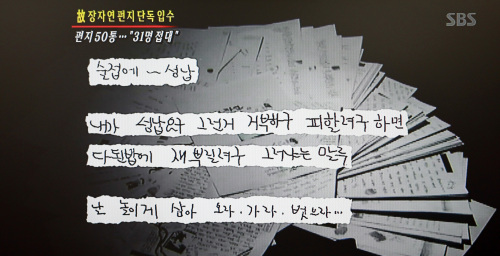 故장자연편지단독입수
SBS
편지 50통…"31명 접대"
술접에 ~ 성납
내가 성납요구 그런거 거부하구 피할려구 하면
다된밥에 재뿌릴려구 그러냐는 말루
난 놀이게 삼아 오라·가라·벗으라…